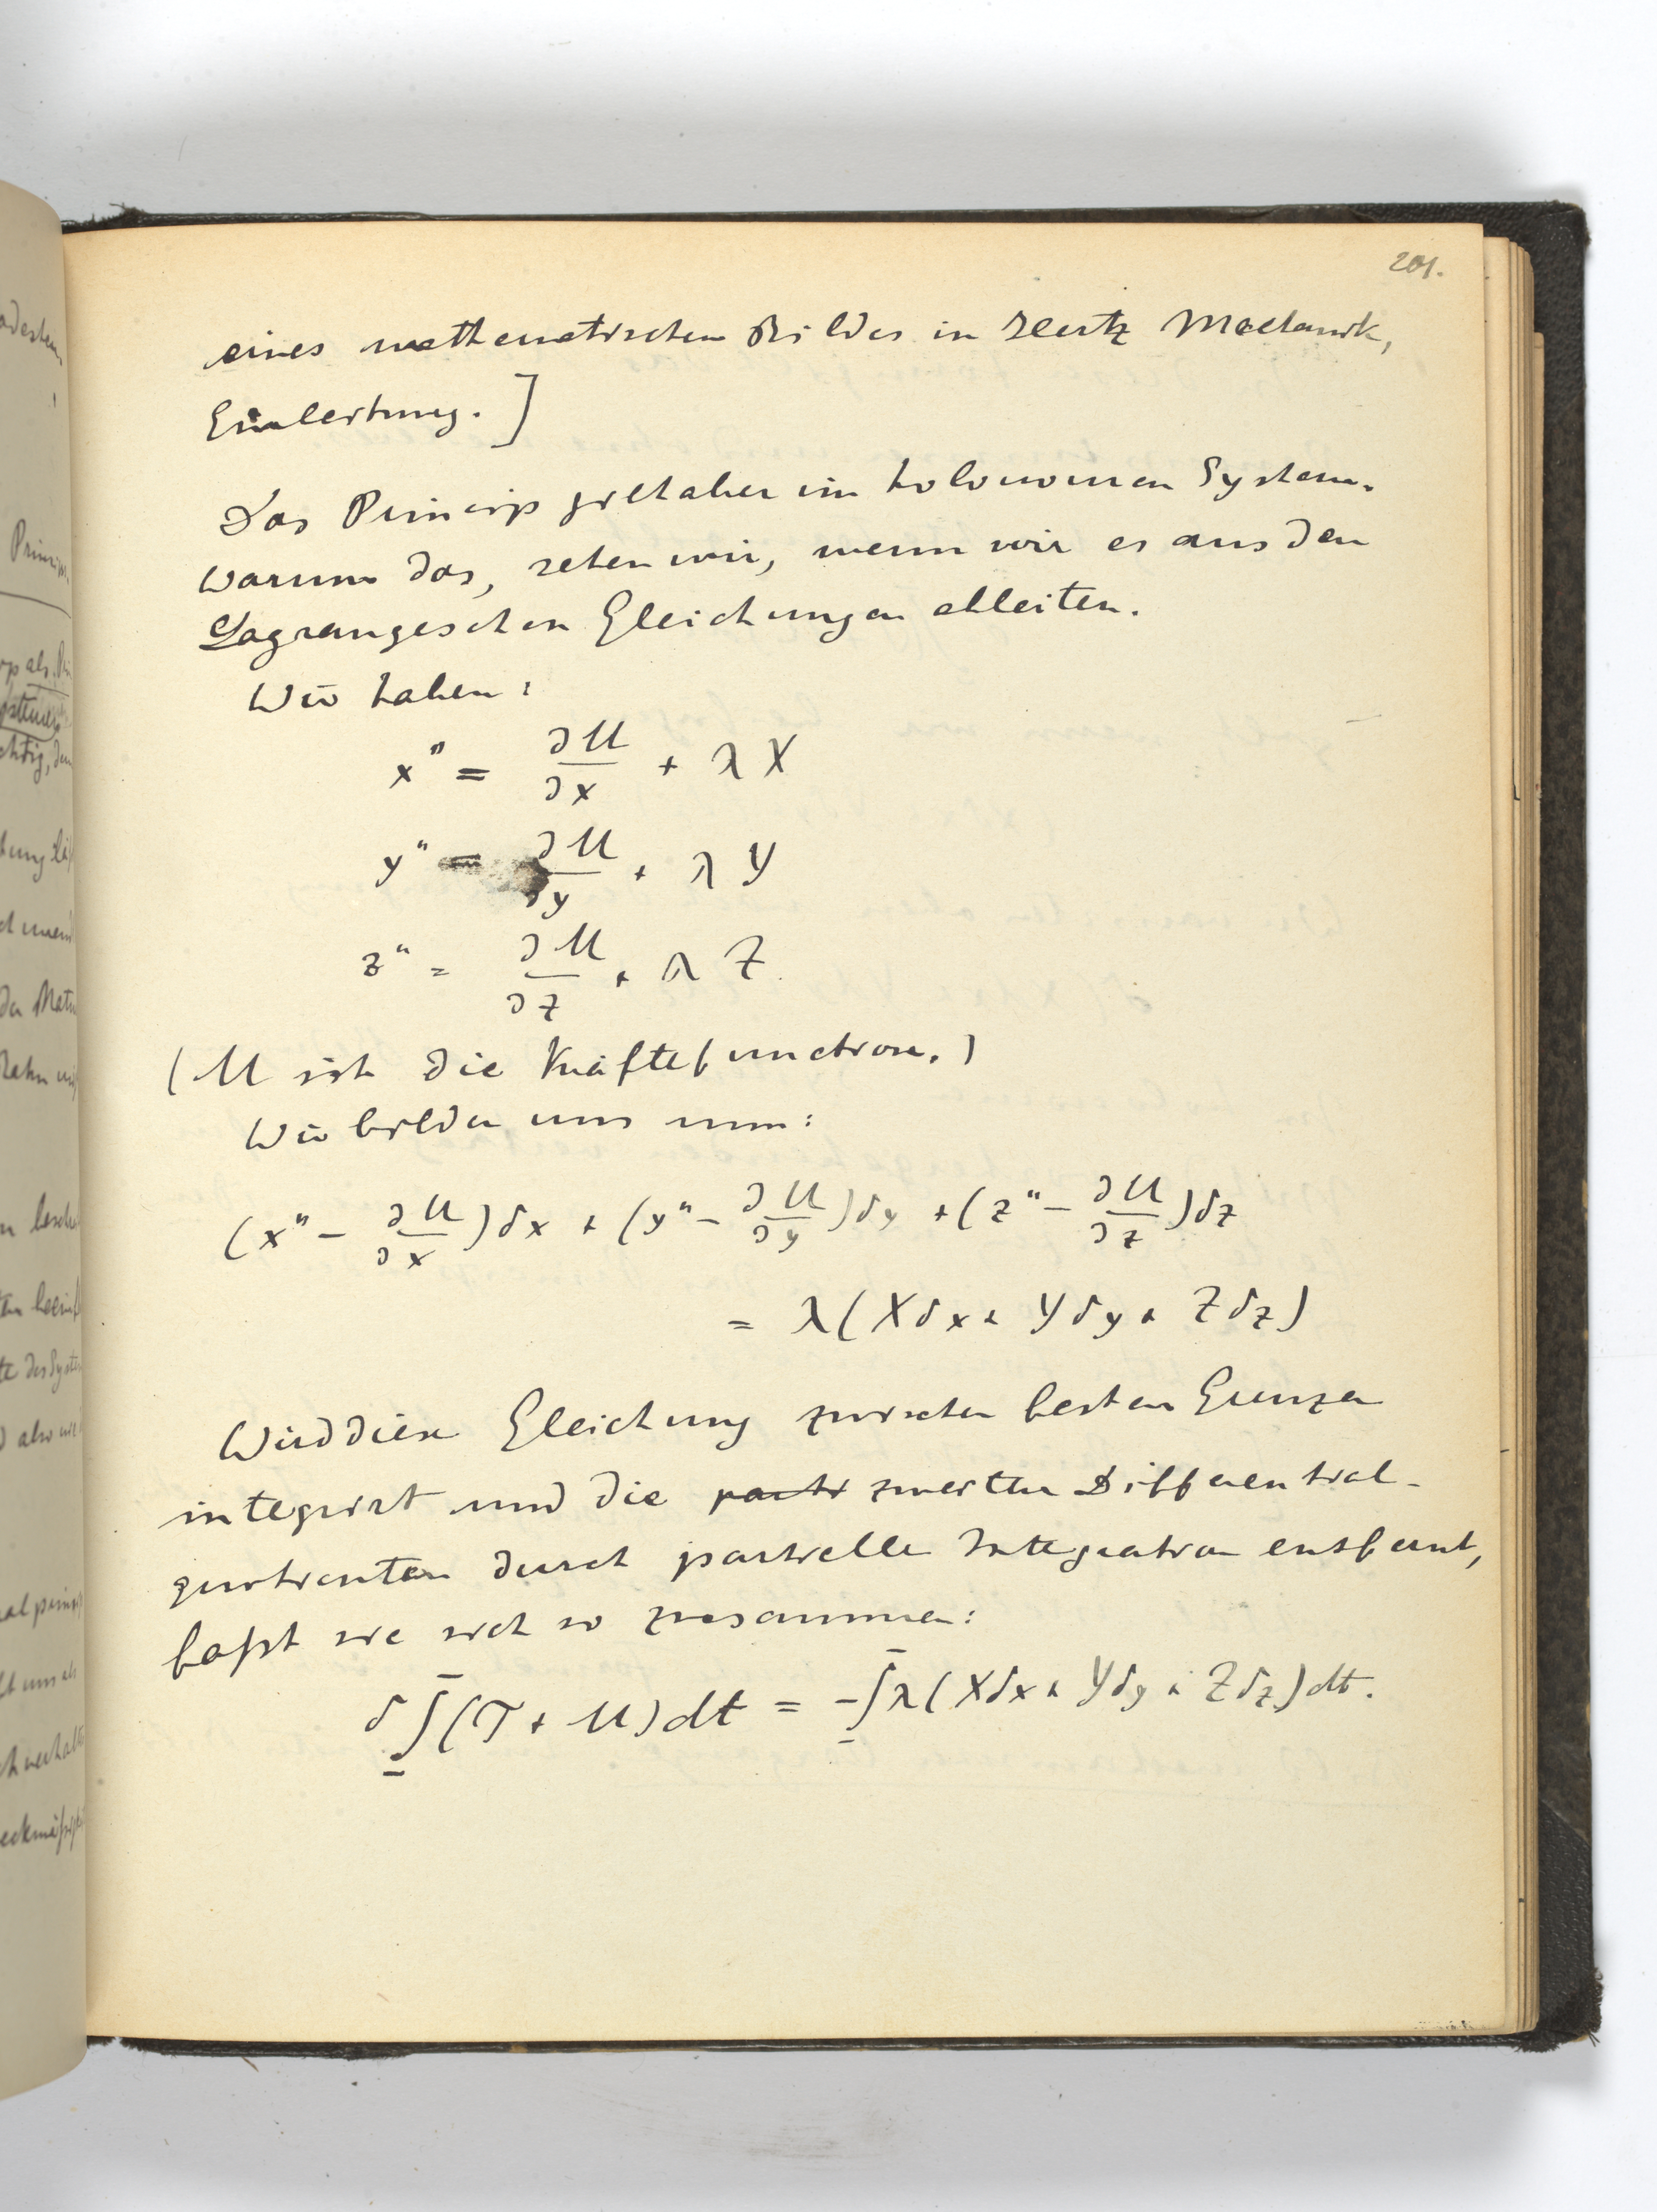 201.
eines mathematischen Bildes in Hertz Mechanik,
Einleitung.]
Das Princip gilt aber im holonomen System.
Warum das, sehen wir, wenn wir es aus den
Lagrangeschen Gleichungen ableiten.
Wir haben:
x" = ∂U/∂x + λX
y" = ∂U/∂y + λY
z" = ∂U/∂z + λZ
(U ist die Kräftefunction.)
Wir bilden uns nun:
(x" - ∂U/∂x)δx + (y" - ∂U/∂y)δy + (z" - ∂U/∂z)δz
= λ(Xδx + Yδy + Zδz)
Wird diese Gleichung zwischen festen Grenzen
integrirt und die parti zweiten Differential-
quotienten durch partielle Integration entfernt,
faßt sie sich so zusammen:
δ∫(T + U)dt = -∫λ(Xδx + Yδy + Zδz)dt.